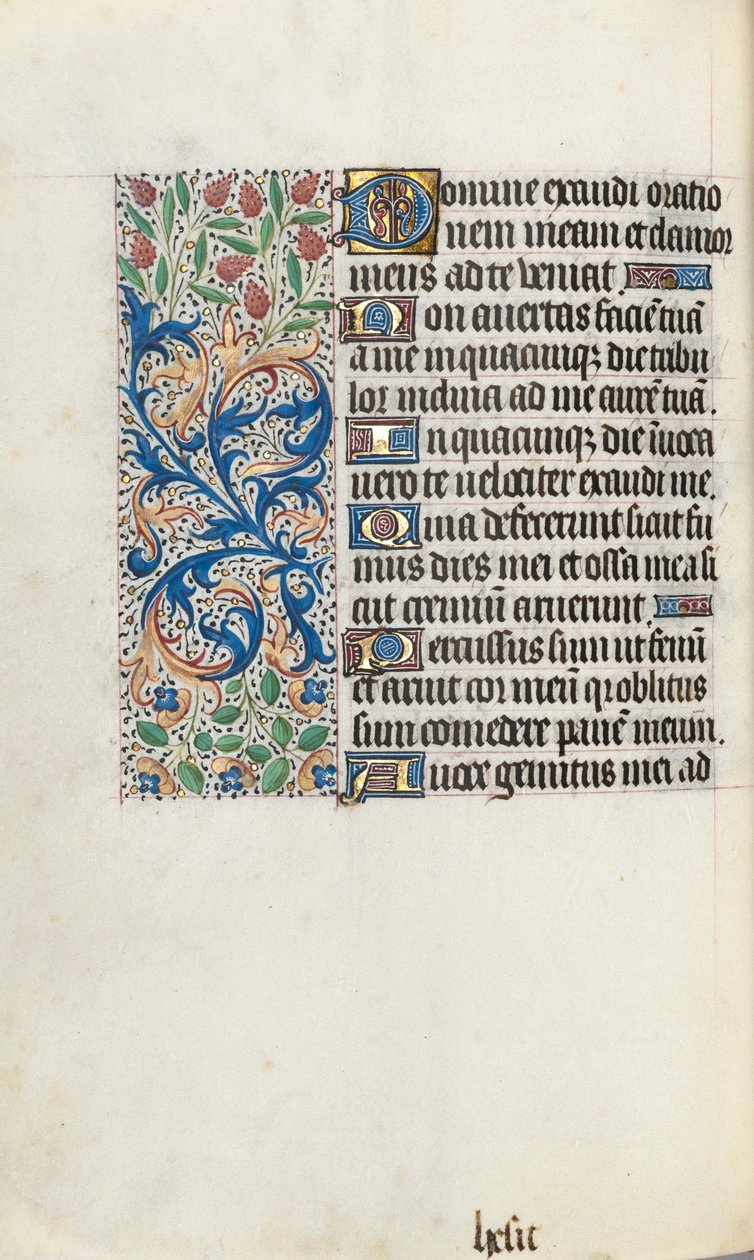 Domine exaudi oratio
nem meam et clamor
meus ad te veniat.
Non avertas faciē tuā
a me in quacunqꝫ die tribu
lor inclina ad me aurē tuā.
In quacunqꝫ die īuoca
uero te uelociter exaudi me.
Quia defecerunt sicut fu
mus dies mei et ossa mea si
cut cremiū aruerunt.
Percussus sum ut fenū
et aruit cor meū qr oblitus
sum comedere panē meum.
A uoce gemitus mei ad
hesit